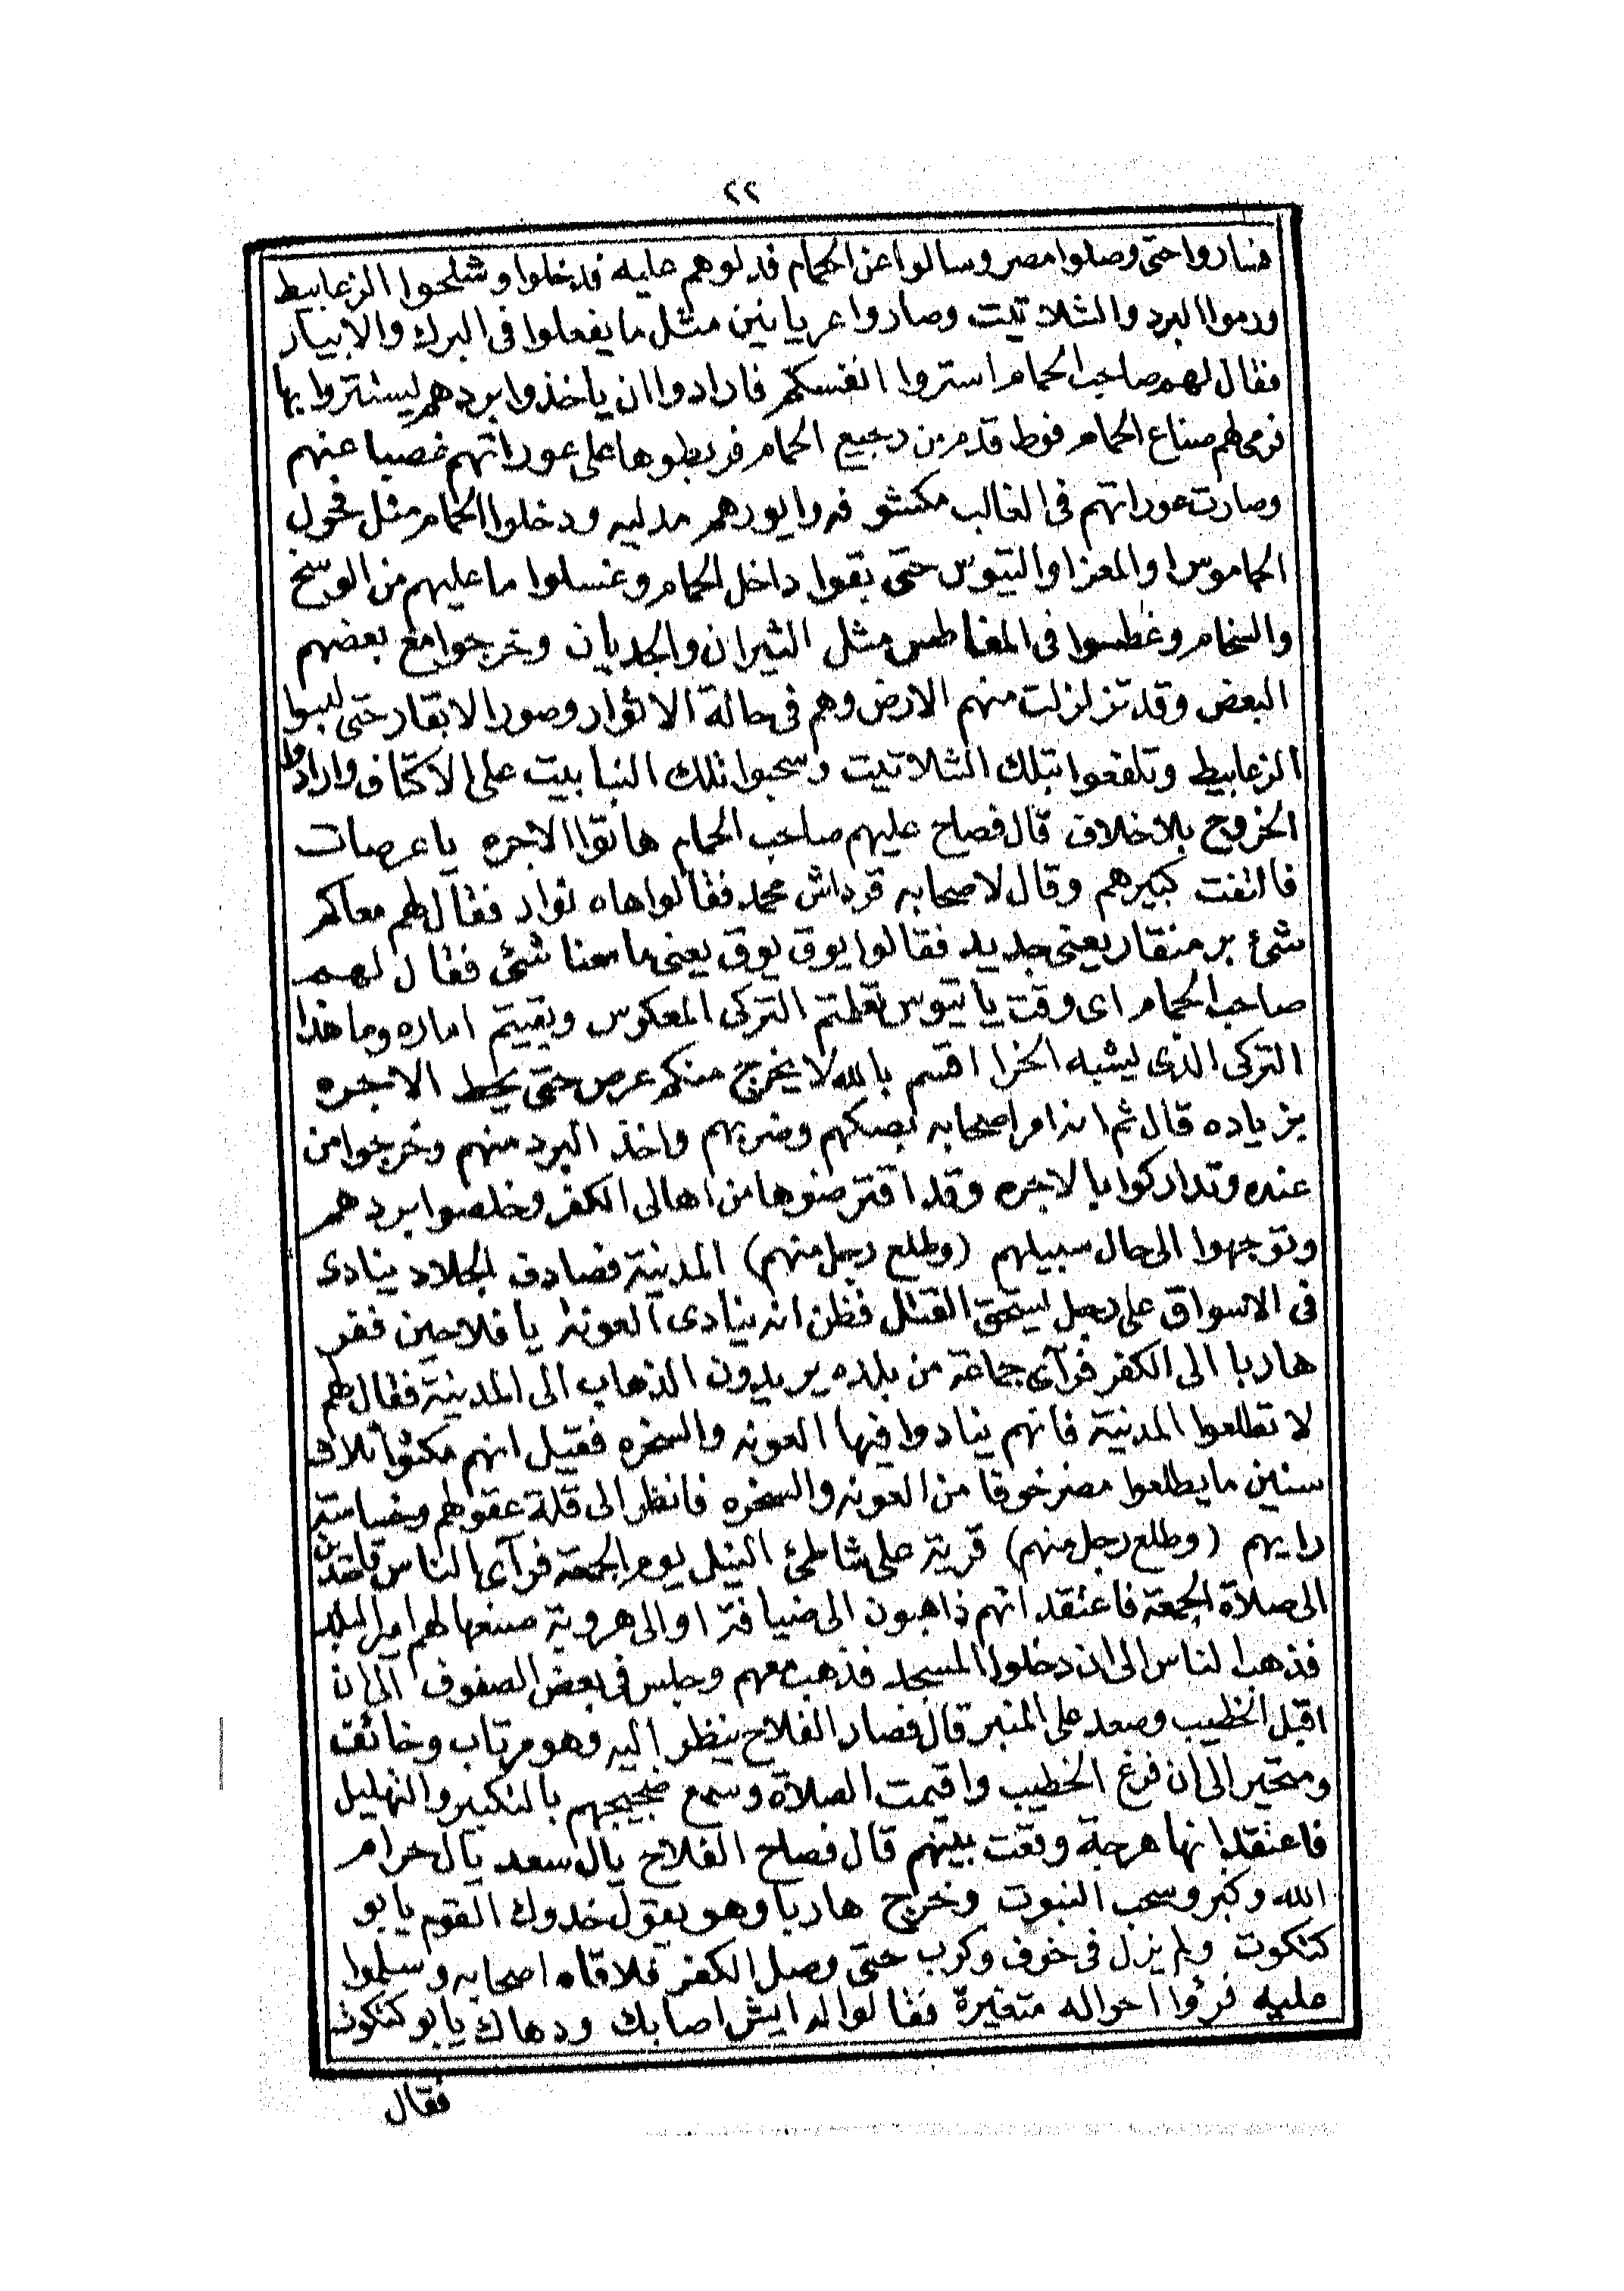 ٢٢
فساروا حتى وصلوا مصر وسالوا عن الحمام فدلوهم عليه فدخلوا وشلحوا الزعابيط
ورموا البرد والشلاتيت وصاروا عريانين مثل ما يفعلوا فى البرك والابيار
فقال لهم صاحب الحمام استروا انفسكم فارادوا ان ياخذوا بردهم ليستتروا بها
فرمى لهم صناع الحمام فوط قدم من رجيع الحمام فربطوها على عوراتهم غصبا عنهم
وصارت عوراتهم فى الغالب مكشوفه وايورهم مدليه ودخلوا الحمام مثل فحول
الجاموس او المعز او التيوس حتى بقوا داخل الحمام وغسلوا ما عليهم من الوسخ
والسخام وغطسوا فى المغاطس مثل الثيران والجديان وخرجوا مع بعضهم
البعض وقد تزلزلت منهم الارض وهم فى حالة الاثوار وصور الابقار حتى لبسوا
الزعابيط وتلفعوا بتلك الشلاتيت وسحبوا تلك النبابيت على الاكتاف وارادوا
الخروج بلا خلاف قال فصاح عليهم صاحب الحمام هاتوا الاجره يا عرصات
فالتفت كبيرهم وقال لاصحابه قرداش محمد فقالوا هاه نوار فقال لهم معاكم
شئ بر منقار يعنى جديد فقالوا يوق يوق يعنى ما معنا شئ فقال لهم
صاحب الحمام اى وقت يا تيوس تعلمتم التركى المعكوس وبقيتم اماره وما هذا
التركى الذى يشبه الخرا اقسم بالله لا يخرج منكم عرص حتى يحط الاجره
بزياده قال ثم انه امر اصحابه بصكهم وضربهم واخذ البرد منهم وخرجوا من
عنده وتداركوا بالاجره وقد اقترضوها من اهالى الكفر وخلصوا بردهم
وتوجهوا الى حال سبيلهم (وطلع رجل منهم) المدينة فصادف الجلاد ينادى
فى الاسواق على رجل يستحق القتل فظن انه ينادى العونه يا فلاحين ففر
هاربا الى الكفر فرآى جماعة من بلده يريدون الذهاب الى المدينة فقال لهم
لا تطلعوا المدينة فانهم ينادوا فيها العونه والسخره فقيل انهم مكثوا ثلاث
سنين ما يطلعوا مصر خوفا من العونه والسخره فانظر الى قلة عقولهم وخساسة
رايهم (وطلع رجل منهم) قرية على شاطئ النيل يوم الجمعة فرآى الناس قاصدين
الى صلاة الجمعة فاعتقد انهم ذاهبون الى ضيافة او الى هروبة صنعها لهم امير البلد
فذهب الناس الى ان دخلوا المسجد فذهب معهم وجلس فى بعض الصفوف الى ان
اقبل الخطيب وصعد على المنبر قال فصار الفلاح ينظر اليه وهو مرتاب وخائف
ومتحير الى ان فرغ الخطيب واقيمت الصلاة وسمع ضجيجهم بالتكبير والتهليل
فاعتقد انها هرجة وقعت بينهم قال فصاح الفلاح يال سعد يال حرام
الله وكبر وسحب النبوت وخرج هاربا وهو يقول خدوك القوم يا بو
كنكوت ولم يزل فى خوف وكرب حتى وصل الكفر فلاقاه اصحابه وسلموا
عليه فرؤا احواله متغيرة فقالوا له ايش اصابك ودهاك يا بو كنكوت
فقال